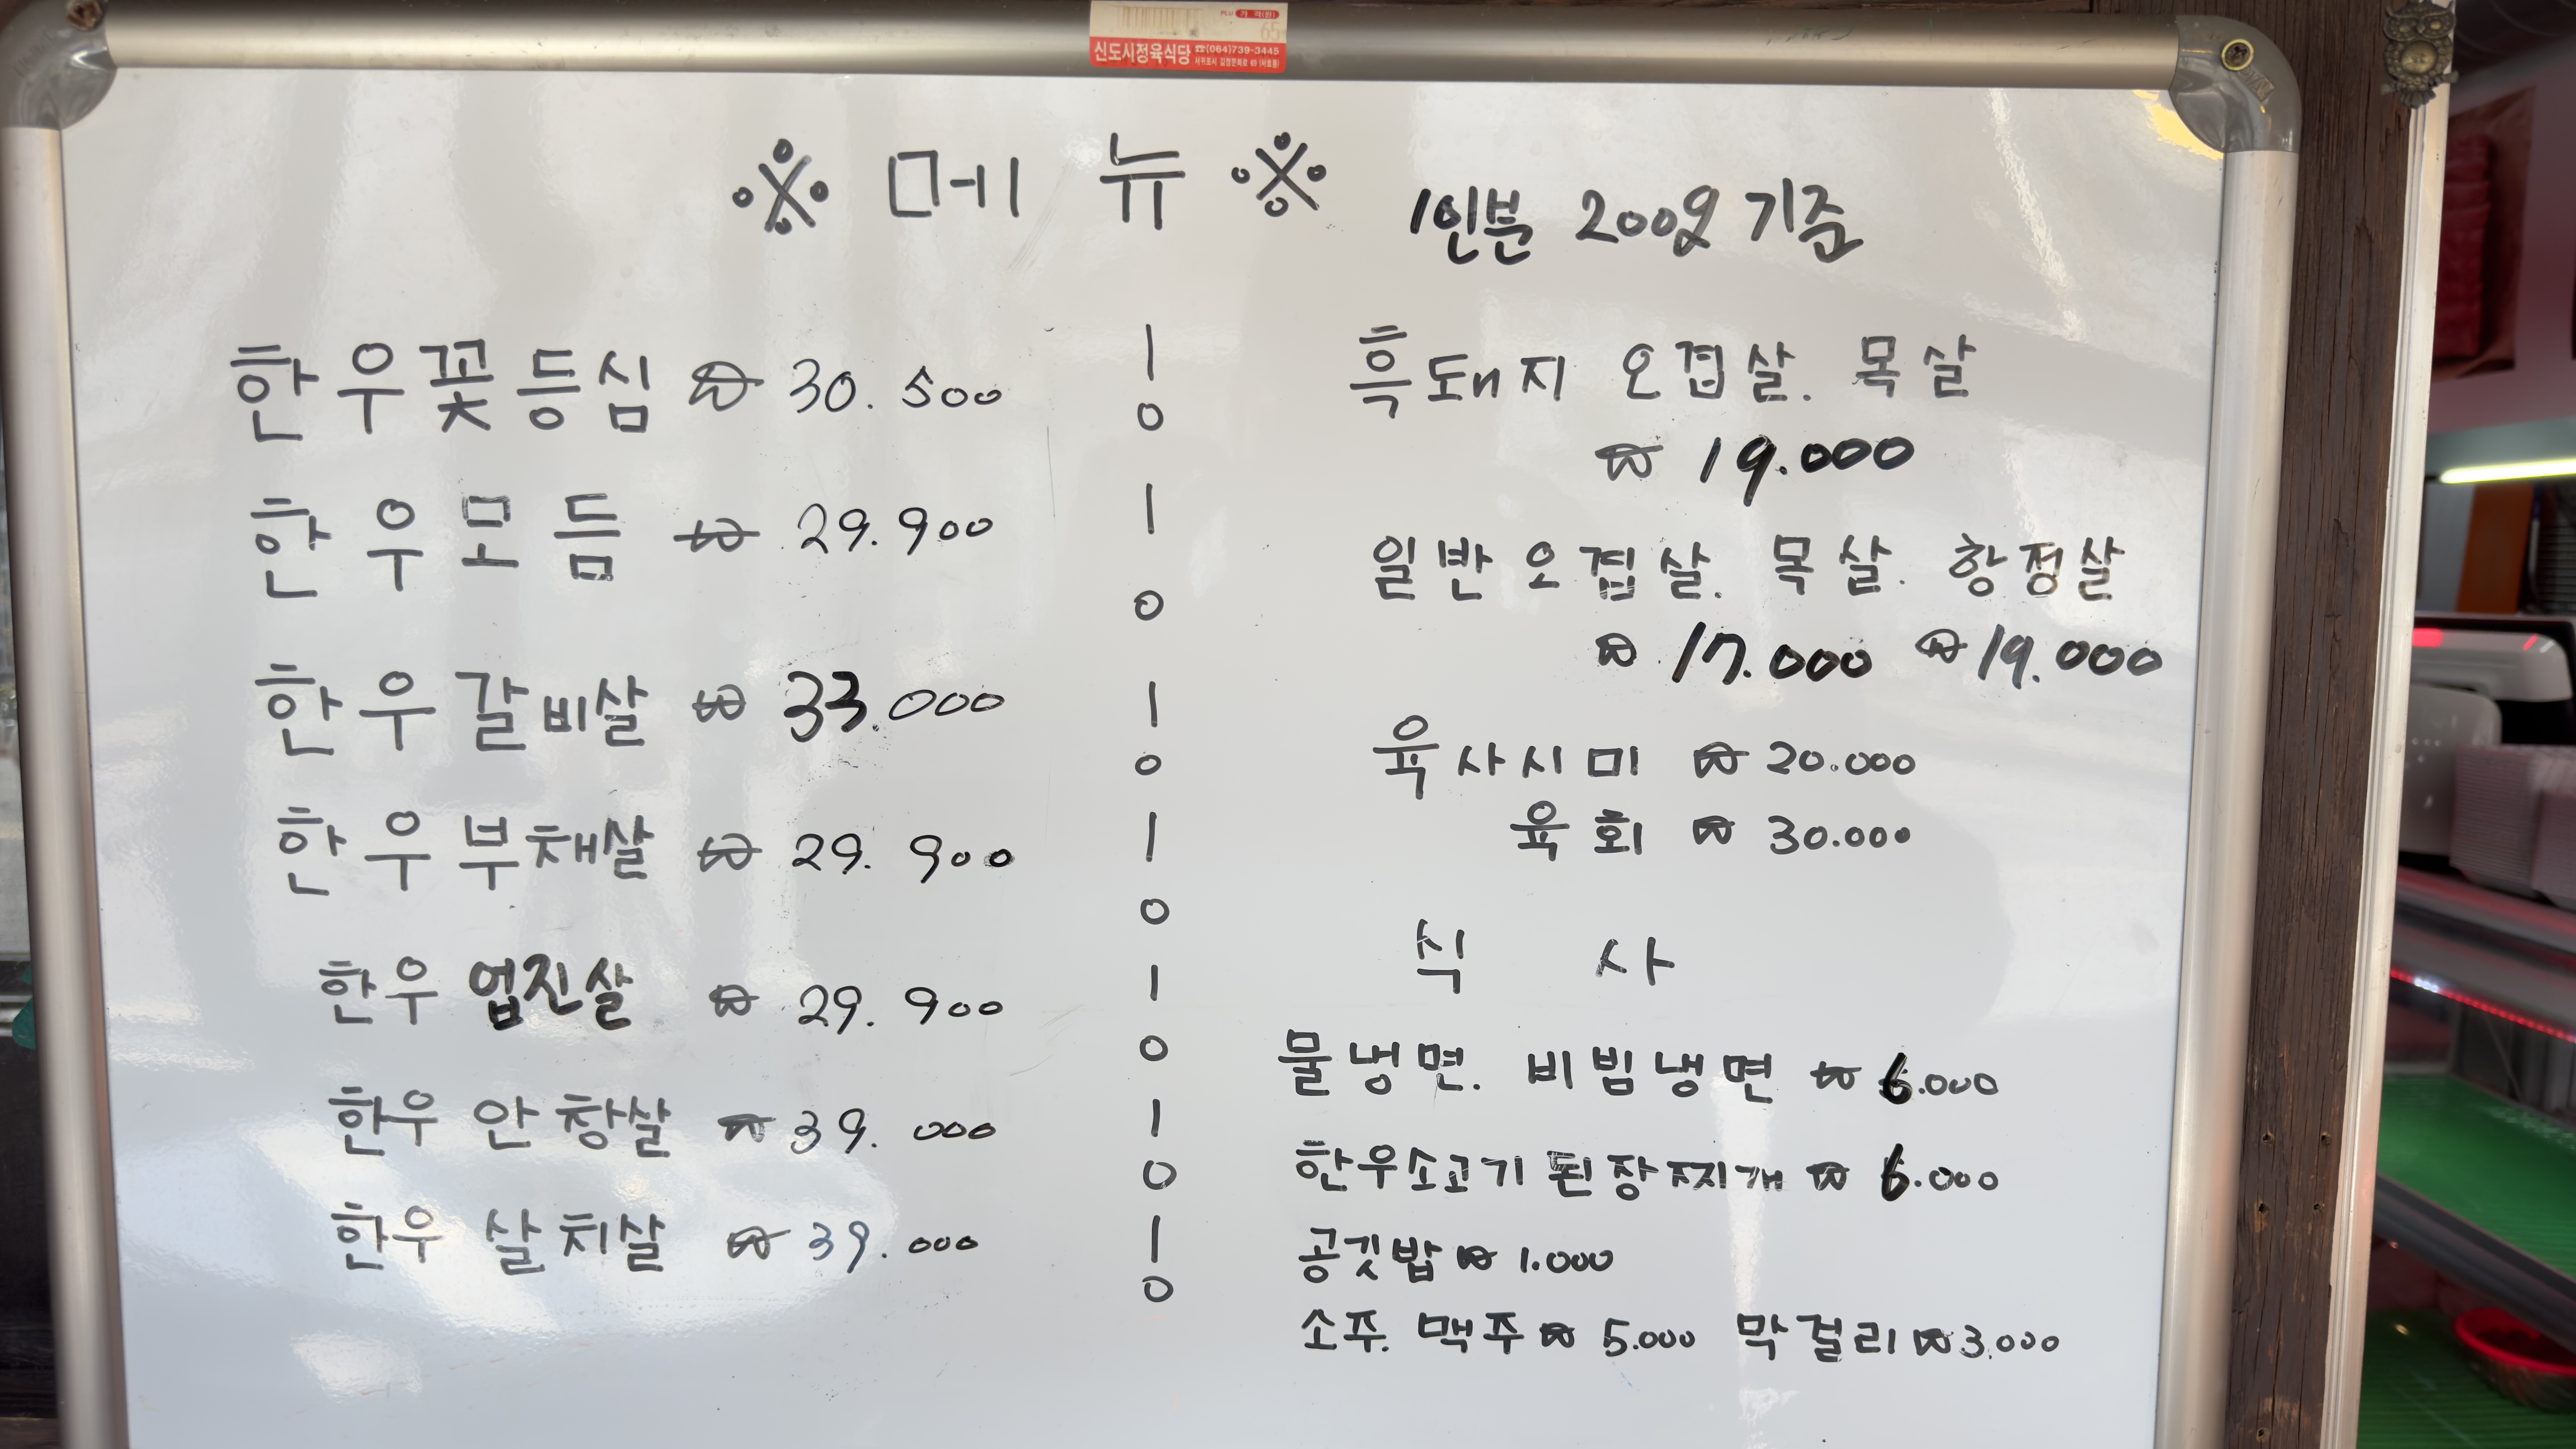 가 격(원)
신도시정육식당 ☎(064)739-3445
※ 메 뉴 ※
1인분 200g 기준
한우꽃등심 ₩ 30.500
한우모듬 ₩ 29.900
한우갈비살 ₩ 33.000
한우부채살 ₩ 29.900
한우 업진살 ₩ 29.900
한우 안창살 ₩ 39.000
한우 살치살 ₩ 39.000
흑돼지 오겹살. 목살
₩ 19.000
일반오겹살. 목살. 항정살
₩ 17.000 ₩ 19.000
육사시미 ₩ 20.000
육회 ₩ 30.000
식 사
물냉면. 비빔냉면 ₩ 6.000
한우소고기 된장찌개 ₩ 6.000
공깃밥 ₩ 1.000
소주. 맥주 ₩ 5.000 막걸리 ₩ 3.000